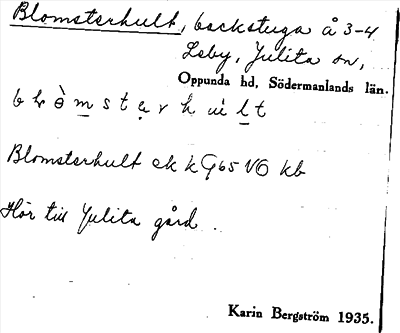 Blomsterhult, backstuga å 3-4
Leby, Julita sn,
Oppunda hd, Södermanlands län.
Blomsterhult ek k G65 VO kb
Hör till Julita gård.
Karin Bergström 1935.